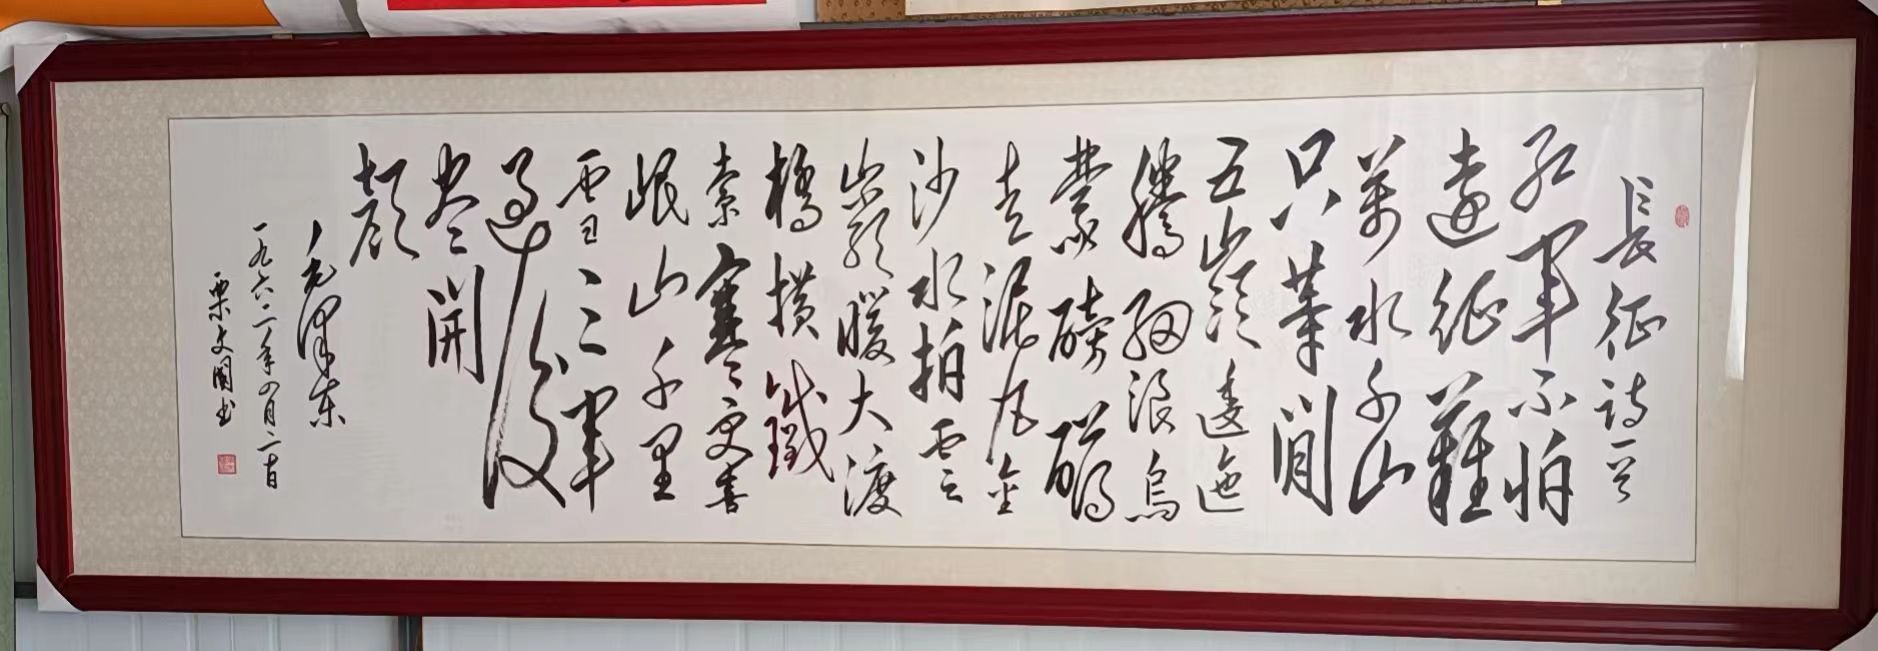 長征詩一首
紅軍不怕
遠征難
萬水千山
只等閒
五嶺逶迤
騰細浪烏
蒙磅礴
走泥丸金
沙水拍雲
暖大渡
橋橫鐵
索寒更喜
岷山千里
雪三軍
過後
盡開
顏
毛澤東
一九六二年四月二十日
栗文國书